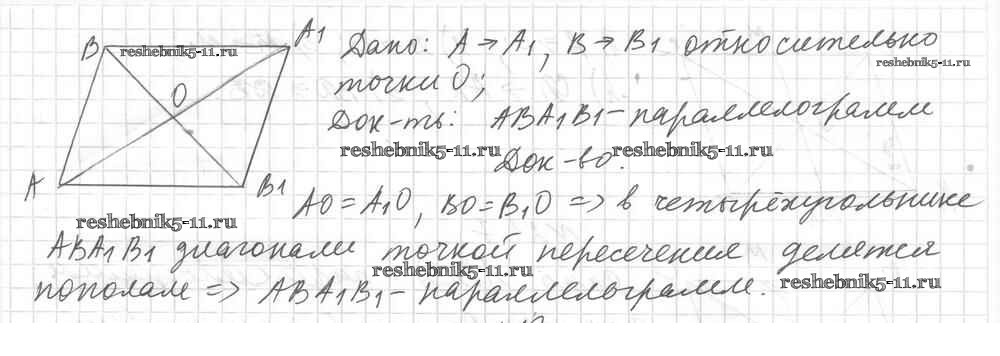 B
A1
O
A
B1
reshebnik5-11.ru
Дано: A → A1, B → B1 относительно
reshebnik5-11.ru
точки O;
Док-ть: ABA1B1 - параллелограмм
reshebnik5-11.ru
reshebnik5-11.ru
Док-во.
AO = A1O, BO = B1O => в четырёхугольнике
reshebnik5-11.ru
ABA1B1 диагонали точкой пересечения делятся
reshebnik5-11.ru
пополам => ABA1B1 - параллелограмм.
reshebnik5-11.ru